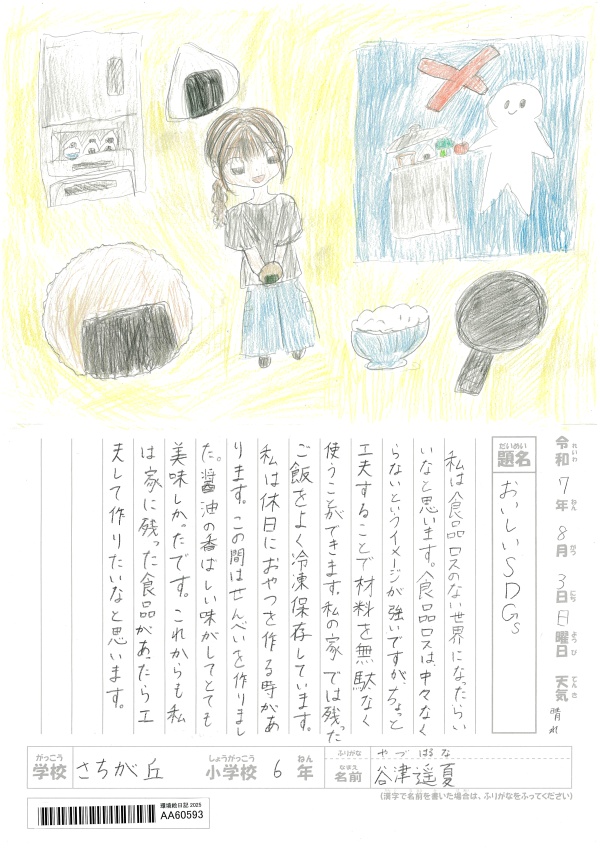 令和 7年 8月 3日 日曜日 天気 晴れ
れいわ ねん がつ にち ようび てんき
だいめい
題名 おいしいSDGs
私は食品ロスのない世界になったらい
いなと思います。食品ロスは、中々なく
らないというイメージが強いですが、ちょっと
工夫することで材料を無駄なく
使うことができます。私の家では残った
ご飯をよく冷凍保存しています。
私は休日におやつを作る時があ
ります。この間はせんべいを作りまし
た。醤油の香ばしい味がしてとても
美味しかったです。これからも私
は家に残った食品があったら工
夫して作りたいなと思います。
がっこう しょうがっこう ねん ふりがな やづ はるな
学校 さちが丘 小学校 6年 なまえ 名前 谷津遥夏
(漢字で名前を書いた場合は、ふりがなをふってください)
環境絵日記 2025
AA60593